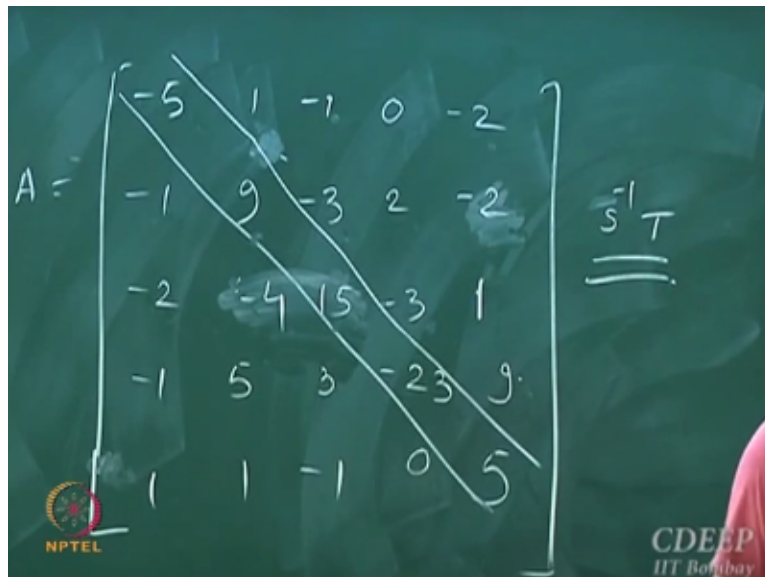 -5 1 -1 0 -2
A = -1 9 -3 2 -2 S⁻¹T
-2 -4 15 -3 1
-1 5 3 -23 9
1 1 -1 0 5
NPTEL
CDEEP
IIT Bombay